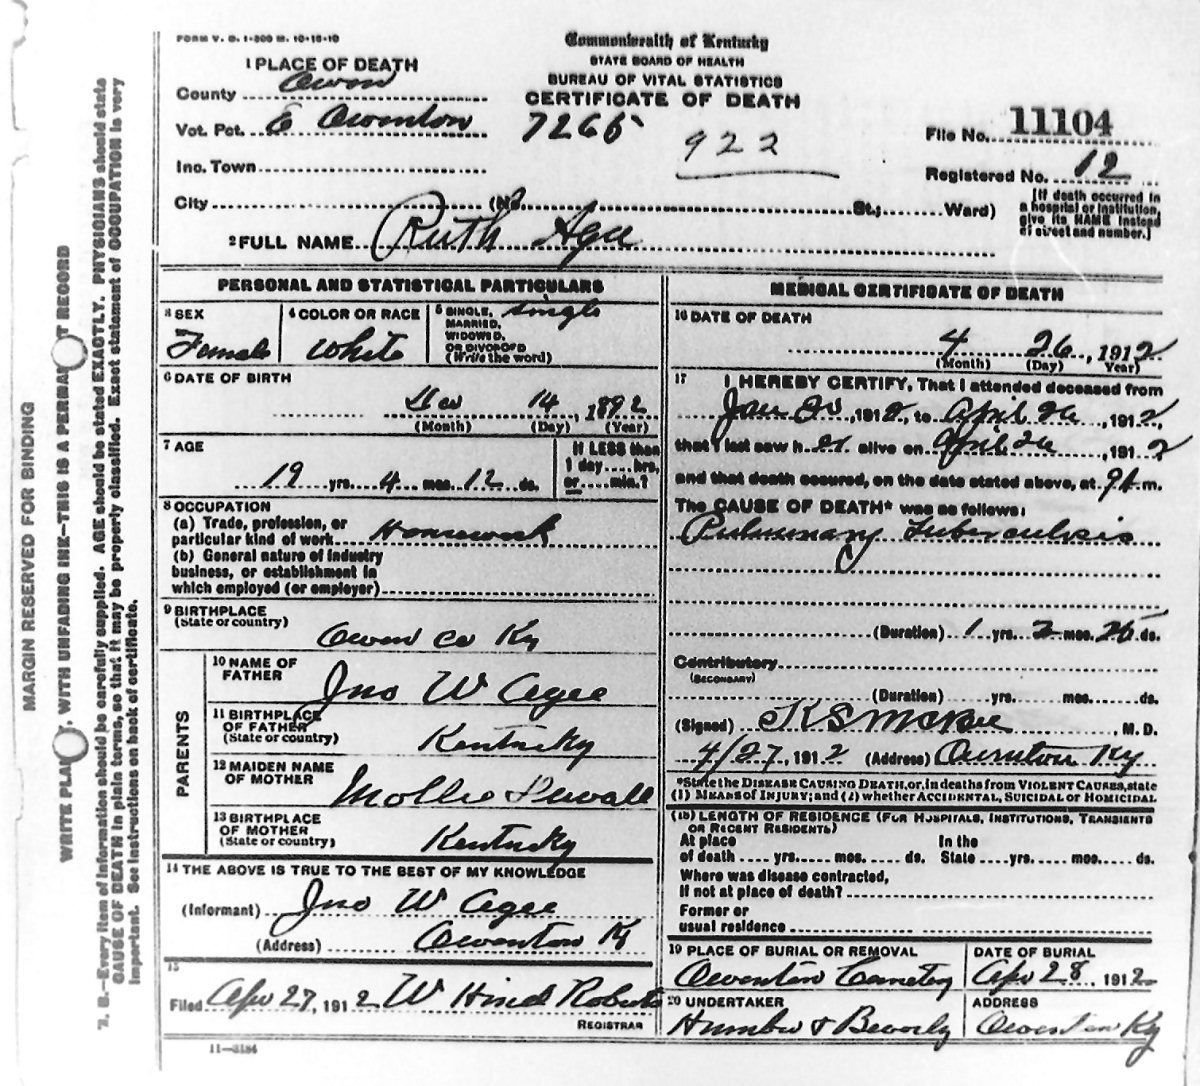 FORM V. S. 1-300 M. 10-18-10
Commonwealth of Kentucky
STATE BOARD OF HEALTH
BUREAU OF VITAL STATISTICS
CERTIFICATE OF DEATH
1 PLACE OF DEATH
County Owen
Vot. Pct. E Owenton 7265 922
File No. 11104
Inc. Town
Registered No. 12
City (No St.; Ward)
[If death occurred in
a hospital or institution,
give its NAME instead
of street and number.]
2 FULL NAME Ruth Agee
PERSONAL AND STATISTICAL PARTICULARS
3 SEX
Female
4 COLOR OR RACE
White
5 SINGLE, Single
MARRIED,
WIDOWED,
OR DIVORCED
(Write the word)
6 DATE OF BIRTH
Dec 14, 1892
(Month) (Day) (Year)
7 AGE
19 yrs. 4 mos. 12 ds.
If LESS than
1 day.....hrs.
or.....min.?
8 OCCUPATION
(a) Trade, profession, or
particular kind of work Housework
(b) General nature of industry
business, or establishment in
which employed (or employer)
9 BIRTHPLACE
(State or country)
Owen Co Ky
PARENTS
10 NAME OF
FATHER
Jno W Agee
11 BIRTHPLACE
OF FATHER
(State or country)
Kentucky
12 MAIDEN NAME
OF MOTHER
Mollie Duvall
13 BIRTHPLACE
OF MOTHER
(State or country)
Kentucky
14 THE ABOVE IS TRUE TO THE BEST OF MY KNOWLEDGE
(Informant) Jno W Agee
(Address) Owenton Ky
15
Filed Apr 27, 1912 W Hind Roberts
REGISTRAR
11-3184
MEDICAL CERTIFICATE OF DEATH
16 DATE OF DEATH
4 26, 1912
(Month) (Day) Year)
17 I HEREBY CERTIFY, That I attended deceased from
Jan 20, 1912, to April 26, 1912,
that I last saw her alive on April 26, 1912
and that death occured, on the date stated above, at 9 A.m.
The CAUSE OF DEATH* was as follows:
Pulmonary Tuberculosis
(Duration) 1 yrs. 2 mos. 26 ds.
Contributory
(SECONDARY)
(Duration) yrs. mos. ds.
(Signed) K S McBee, M. D.
4/27, 1912 (Address) Owenton Ky
*State the DISEASE CAUSING DEATH, or, in deaths from VIOLENT CAUSES, state
(1) MEANS of INJURY; and (2) whether ACCIDENTAL, SUICIDAL or HOMICIDAL
(18) LENGTH OF RESIDENCE (FOR HOSPITALS, INSTITUTIONS, TRANSIENTS
OR RECENT RESIDENTS)
At place In the
of death .... yrs. .... mos. .... ds. State .... yrs. .... mos. .... ds.
Where was disease contracted,
If not at place of death?
Former or
usual residence
19 PLACE OF BURIAL OR REMOVAL
Owenton Cemetery
DATE OF BURIAL
Apr 28, 1912
20 UNDERTAKER
Humber & Beverly
ADDRESS
Owenton Ky
MARGIN RESERVED FOR BINDING
WRITE PLAINLY, WITH UNFADING INK—THIS IS A PERMANENT RECORD
N. B.—Every item of information should be carefully supplied. AGE should be stated EXACTLY. PHYSICIANS should state
CAUSE OF DEATH in plain terms, so that it may be properly classified. Exact statement of OCCUPATION is very
important. See instructions on back of certificate.